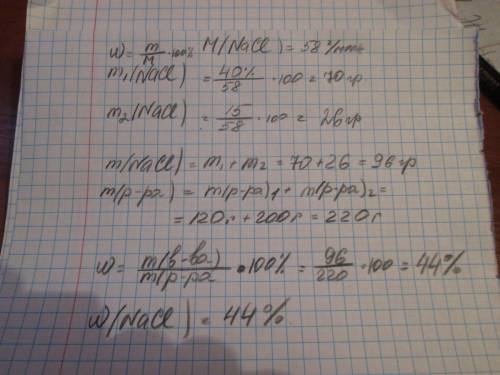 ω = m/M · 100% M(NaCl) = 58 г/моль
m₁(NaCl) = 40%/58 · 100 = 70 гр
m₂(NaCl) = 15/58 · 100 = 26 гр
m(NaCl) = m₁ + m₂ = 70 + 26 = 96 гр
m(р-ра) = m(р-ра)₁ + m(р-ра)₂ =
= 120г + 200г = 220г
ω = m(в-ва)/m(р-ра · 100% = 96/220 · 100 = 44%
ω(NaCl) = 44%